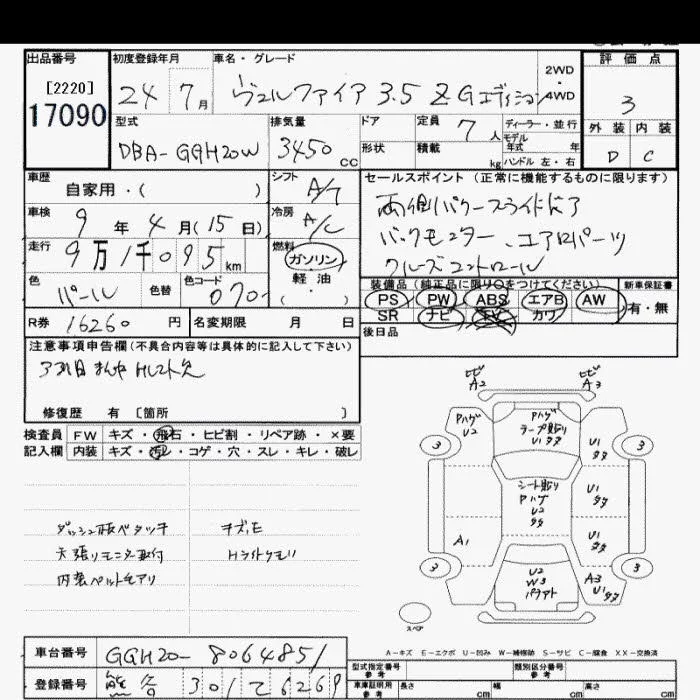 出品番号
[2220]
17090
初度登録年月
24 7月
車名・グレード
ヴェルファイア 3.5 Z Gエディション
2WD
・
4WD
評価点
3
外装 内装
D C
型式
DBA-GGH20W
排気量
3450cc
ドア
形状
定員 7人
積載 kg
ディーラー・並行
モデル年式 年
ハンドル 左・右
車歴
自家用・( )
シフト
A/T
車検
9年 4月(15日)
冷房
A/C
走行
9万1千095km
燃料
ガソリン
軽油
( ・ )
色
パール
色替
色コード
070
セールスポイント(正常に機能するものに限ります)
両側パワースライドドア
バックモニター、エアロパーツ
クルーズコントロール
装備品(純正品に限り〇をつけてください)
PS PW ABS エアB AW
SR ナビ TV カワ
新車保証書
有・無
後日品
R券 16260円
名変期限 月 日
注意事項申告欄(不具合内容等は具体的に記入して下さい)
修復歴 有 [箇所 ]
検査員
記入欄
FW キズ・飛石・ヒビ割・リペア跡・×要
内装 キズ・汚レ・コゲ・穴・スレ・キレ・破レ
ダッシュ板ベタツキ
天張りモニター取付
内装ペット毛アリ
キズ、凹
Hライトクモリ
ヒビ
A2
ヒビ
A3
Pハゲ
U2
Pハゲ
ラープ貼り
U1 タタ
U1
タタ
3
3
シート貼り
Pハゲ
U2
タタ
U1
タタ
A1
U1
タタ
3
3
U2
W3
A3
U1 タタ
スペア
A-キズ E-エクボ U-凹み W-補修跡 S-サビ C-腐食 XX-交換済
車台番号
GGH20-8064851
登録番号
型式指定番号
参考
類別区分番号
参考
車庫証明用
参考
長さ cm
幅 cm
高さ cm